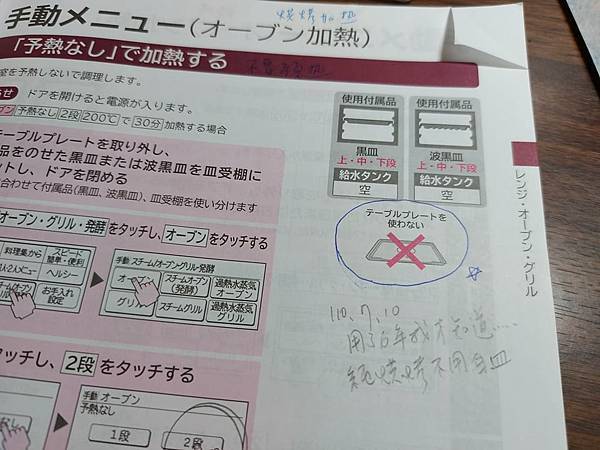 烘烤加熱
手動メニュー(オーブン加熱)
「予熱なし」で加熱する
不需預熱
室を予熱しないで調理します。
らせ ドアを開けると電源が入ります。
ブン 予熱なし 2段 200℃ で 30分 加熱する場合
テーブルプレートを取り外し、
品をのせた黒皿または波黒皿を皿受棚に
ットし、ドアを閉める
合わせて付属品(黒皿、波黒皿)、皿受棚を使い分けます
オーブン・グリル・発酵 をタッチし、オーブン をタッチする
料理集から
スピード
簡単・便利
1人・2人メニュー
ヘルシー
お手入れ
設定
手動 スチーム/オーブン・グリル・発酵
オーブン
スチームオーブン
(発酵)
過熱水蒸気
オーブン
グリル
スチームグリル
過熱水蒸気
グリル
タッチし、2段 をタッチする
手動 オーブン
予熱なし
1段
2段
使用付属品
黒皿
上・中・下段
給水タンク
空
使用付属品
波黒皿
上・中・下段
給水タンク
空
テーブルプレートを
使わない
レンジ・オーブン・グリル
110、7、10
用了6年我才知道....
純烘烤不用白皿